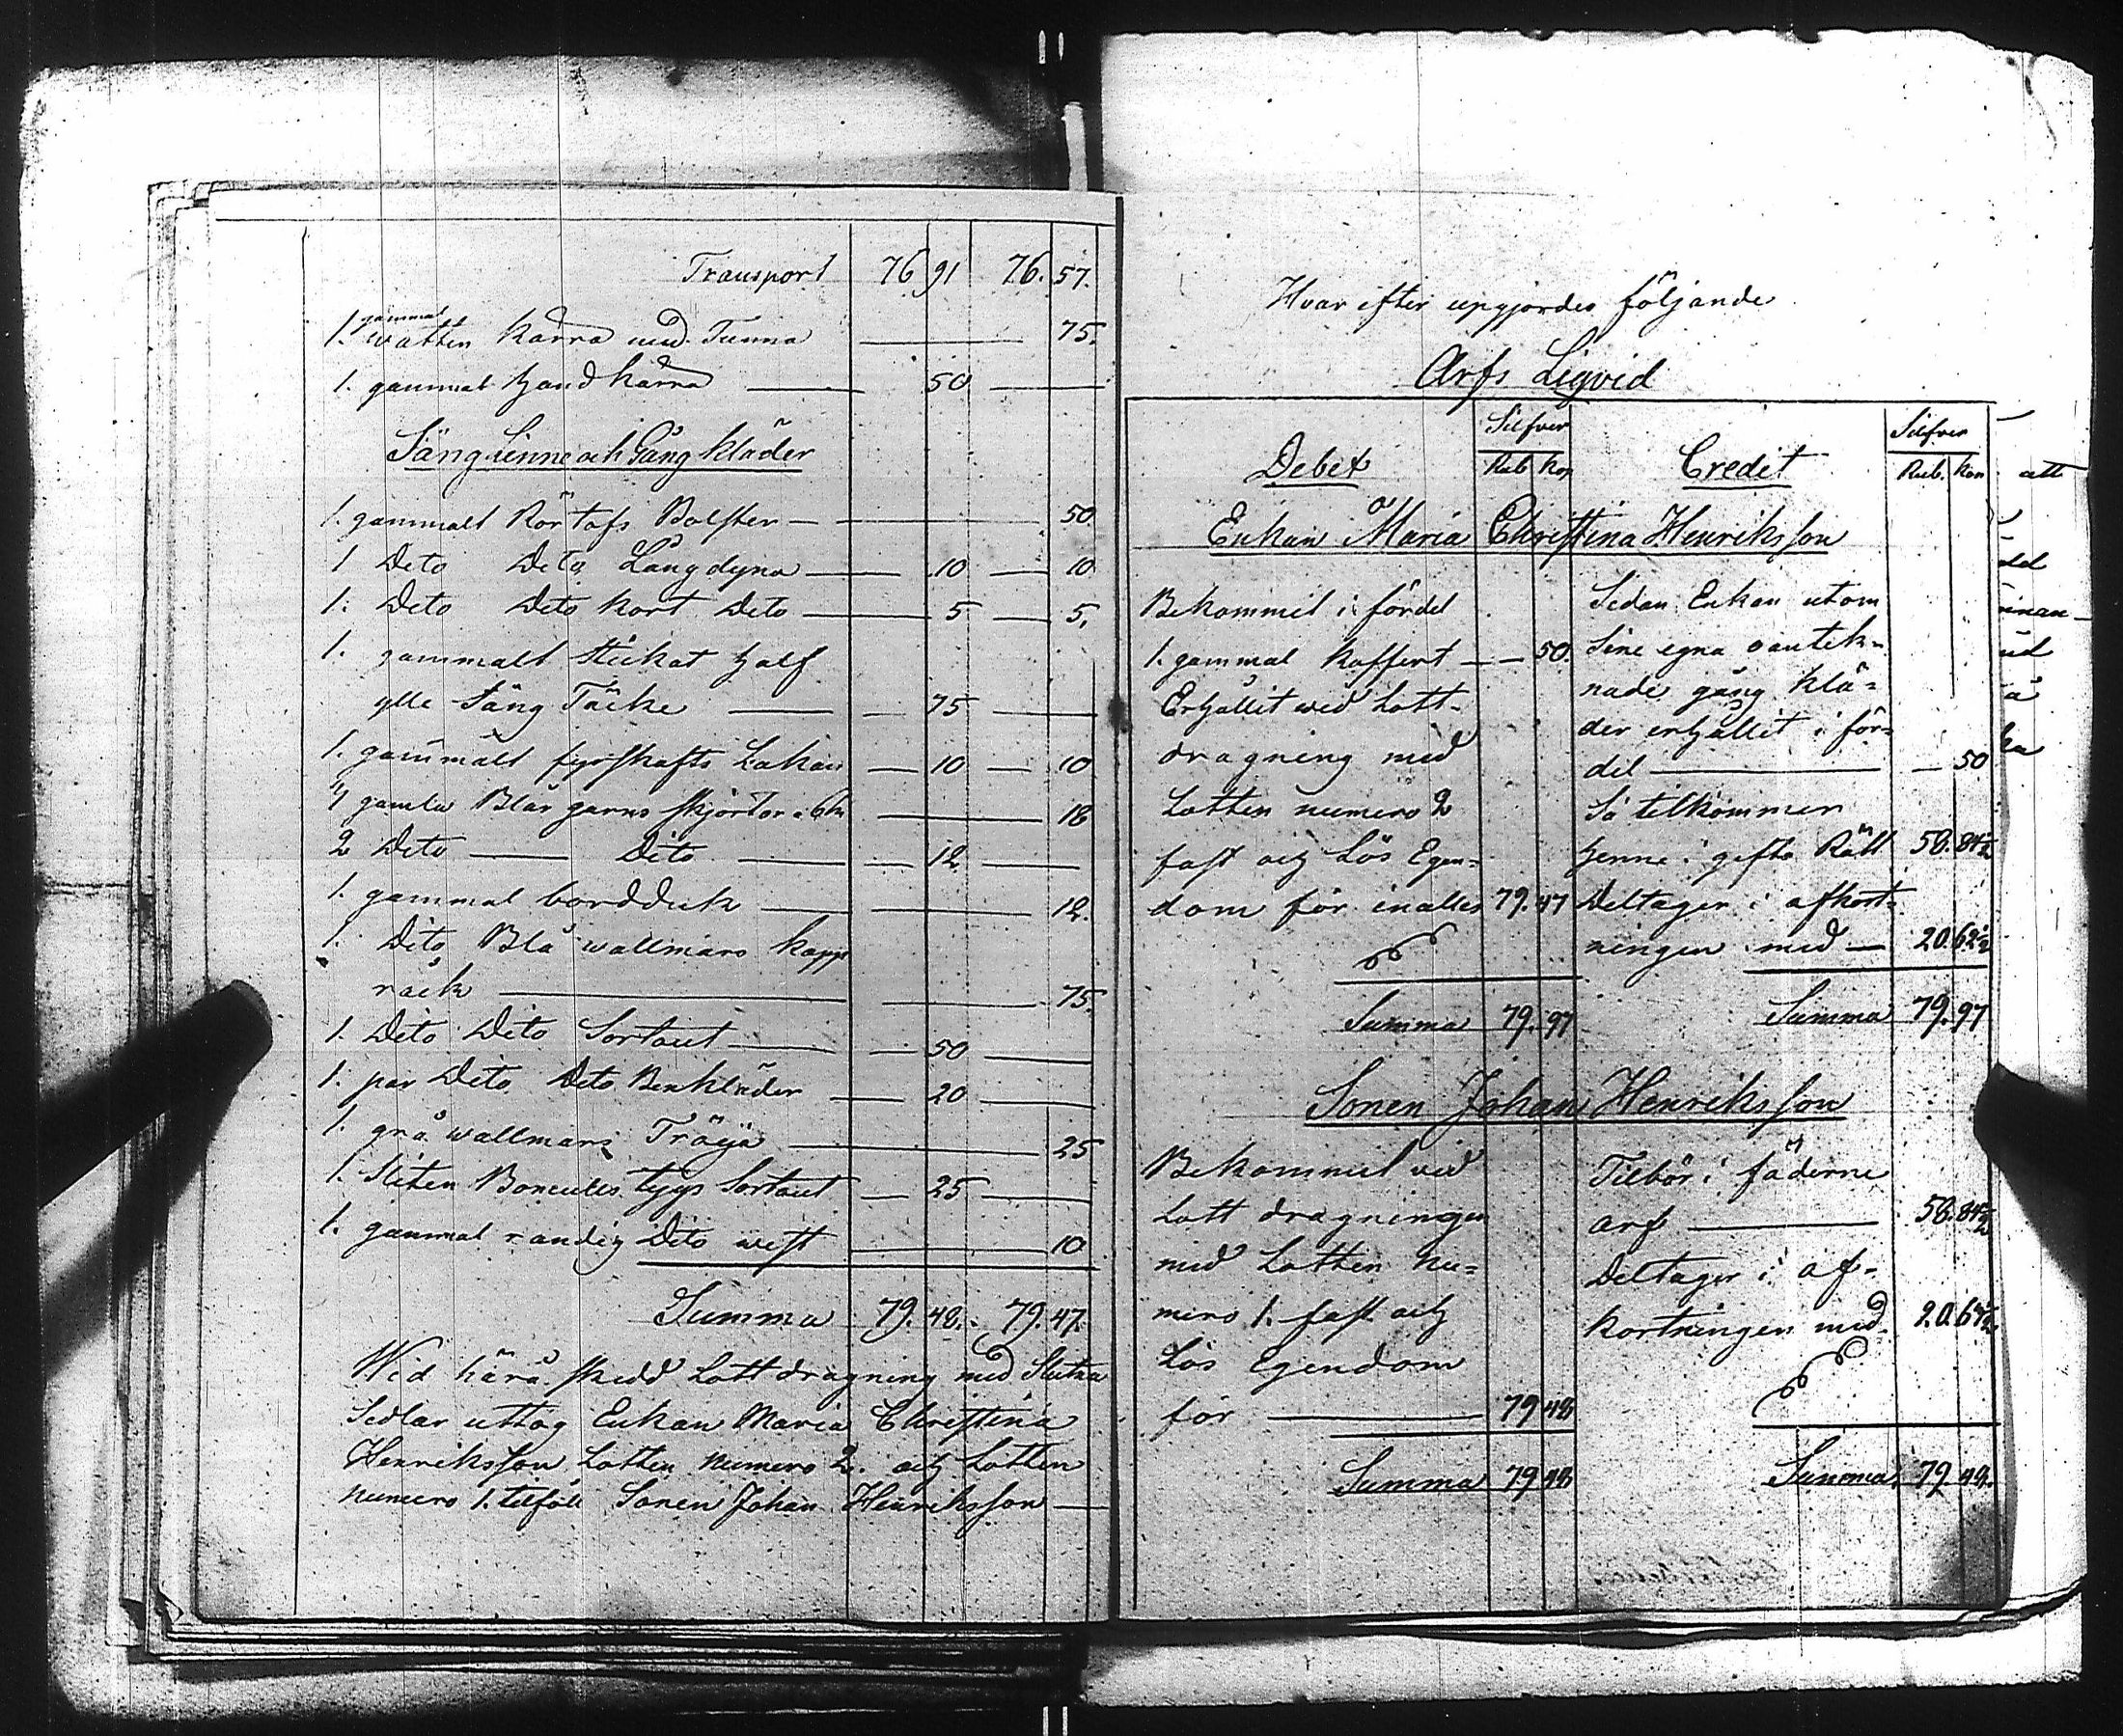 Transport 76 91 76. 57.
gammal
1. watten kärra med Tunna 75.
1. gammal handkärra 50
Säng linne och Gång kläder
1. gammalt Rörtofs Bolster 50
1 Dito Dito Långdyna 10 10
1. Dito Dito kort Dito 5 5.
1. gammalt Stickat half
ylle Säng Täcke 75
1. gammalt fyrskafts Lakan 10 10
gamla Blångarns skjortor a 6 k 18
2 Dito Dito 12
1. gammal bordduk 12.
1. Dito Blå wallmars kapp
råck 75.
1. Dito Dito Sortout 50
1. par Dito Dito Benkläder 20
1. grå wallmars Tröija 25
1. Sliten Bomulls tygs Sortout 25
1. gammal randig Dito west 10
Summa 79. 48. 79. 47.
Wid härå skedd Lottdragning med Slutna
Sedlar uttog Enkan Maria Christina
Henriksson Lotten Numero 2. och Lotten
Numero 1. tilföll Sonen Johan Henriksson
Hvar efter upgjordes följande
Arfs Liqvid
Debet Silfver Rub Kop Credit Silfver Rub. Kop
Enkan Maria Christina Henriksson
Bekommit i fördel
1. gammal Koffert 50.
Erhållit wid Lott-
dragning med
Lotten numero 2
fast och Lös Egen=
dom för inalles 79. 47
Summa 79. 97
Sedan Enkan utom
Sine egna oantek-
nade gång klä=
der erhållit i för=
del 50
Så tilkommer
henne i gifto Rätt 58. 84½
Deltager i afkort=
ningen med 20. 62½
Summa 79. 97
Sonen Johan Henriksson
Bekommit vid
Lott dragningen
med Lotten Nu=
mero 1. fast och
Lös Egendom
för 79 48
Summa 79 48
Tilbör i fäderne
arf 58. 84½
Deltager i af-
kortningen med 20. 64½
Summa 79 48.
att